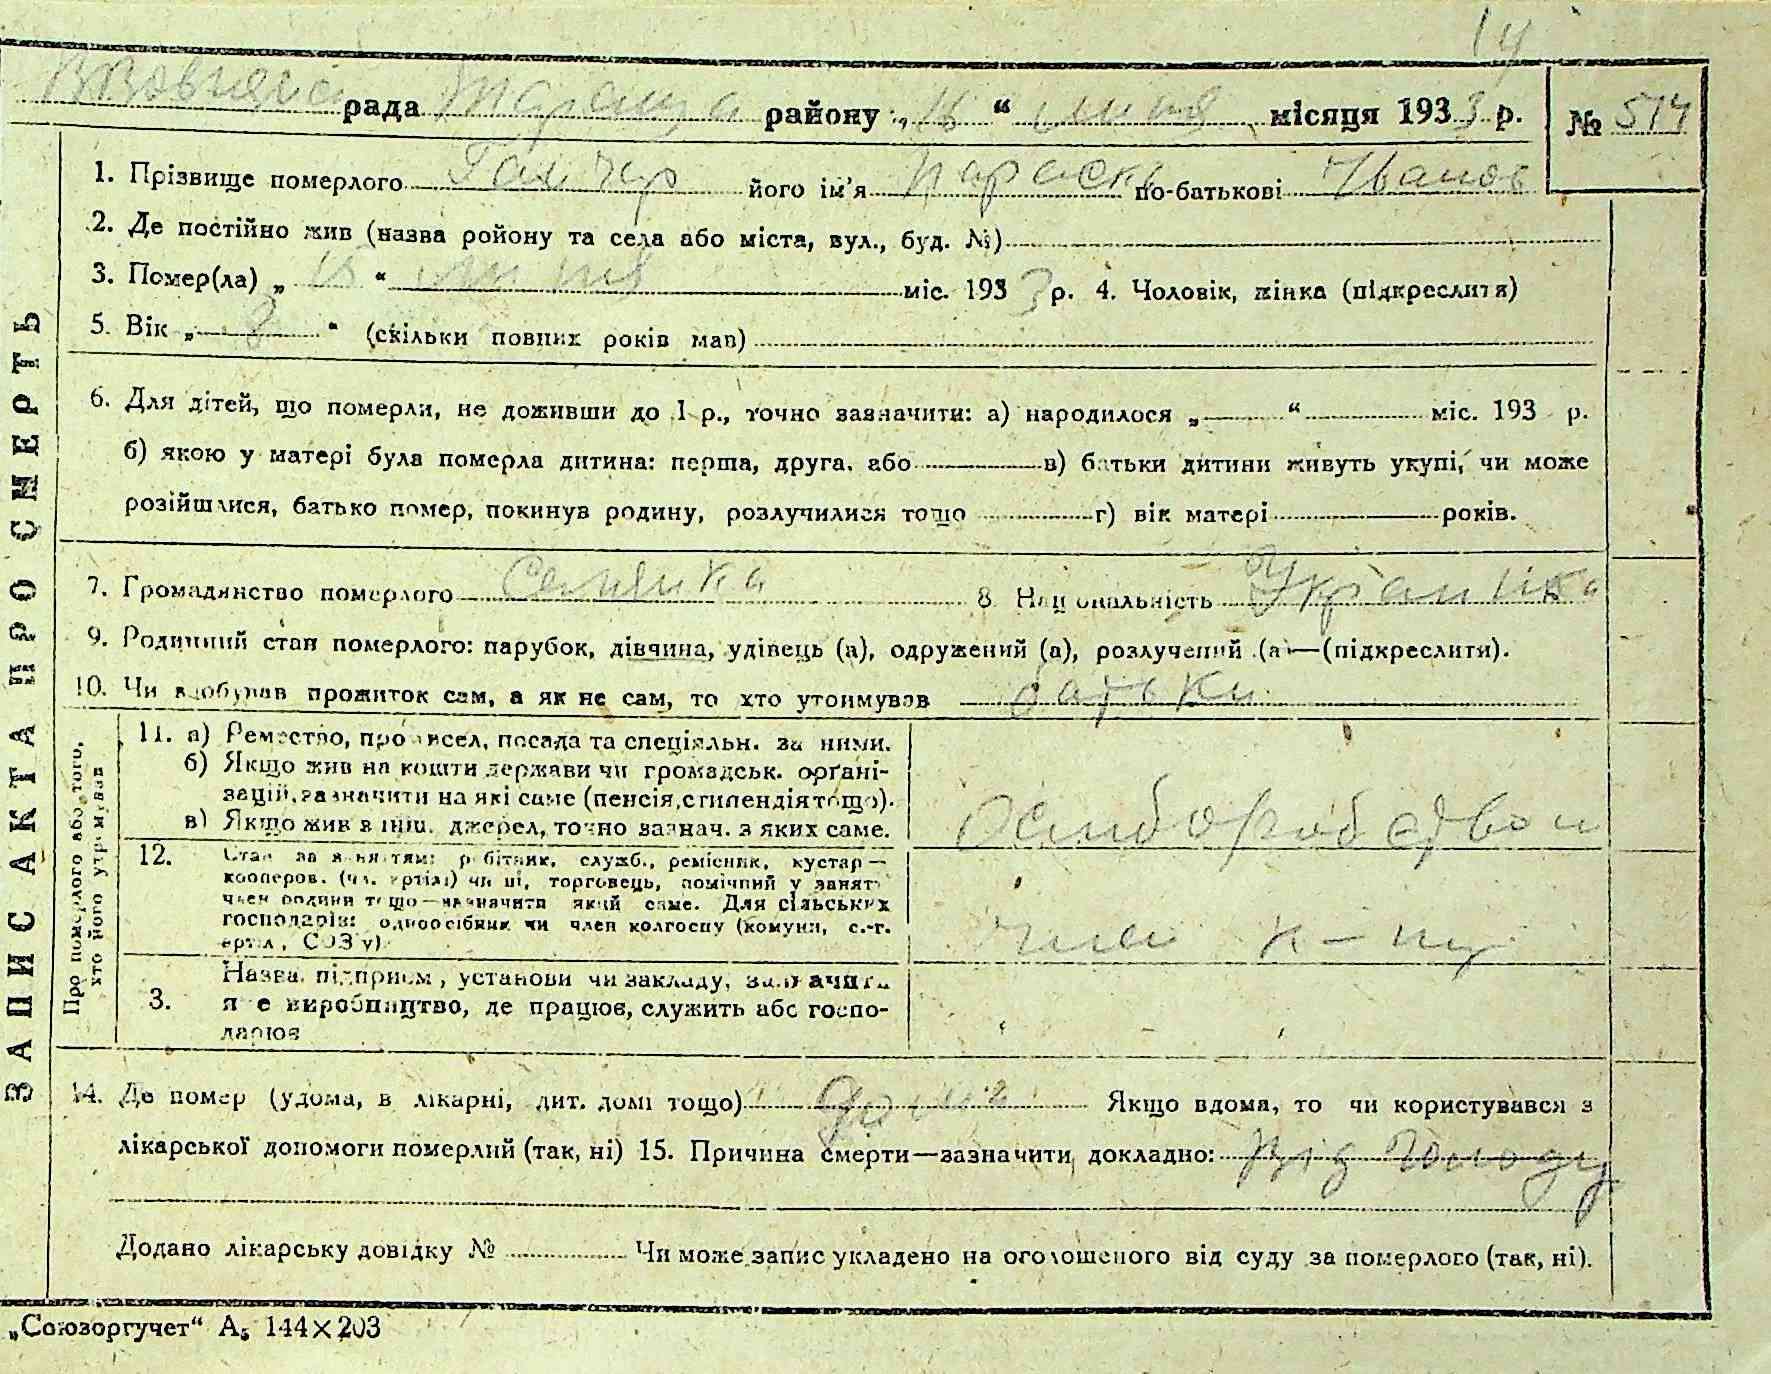 14
рада Тараща району „16“ липня місяця 1933 р. № 514
1. Прізвище померлого його ім'я Параска по-батькові Іванов
2. Де постійно жив (назва ройону та села або міста, вул., буд. №)
3. Помер(ла) „16“ липня міс. 1933 р. 4. Чоловік, жінка (підкреслити)
5. Вік „8“ (скільки повних років мав)
6. Для дітей, що померли, не доживши до 1 р., точно зазначити: а) народилося „ “ міс. 193 р.
б) якою у матері була померла дитина: перша, друга, або в) батьки дитини живуть укупі, чи може
розійшлися, батько помер, покинув родину, розлучилися тощо г) вік матері років.
7. Громадянство померлого селянка 8 Національність Українка
9. Родинний стан померлого: парубок, дівчина, удівець (а), одружений (а), розлучений (а)—(підкреслити).
10. Чи здобував прожиток сам, а як не сам, то хто утримував батьки
ЗАПИС АКТА ПРО СМЕРТЬ
Про померлого або того,
хто його утримував
11. а) Ремество, промисел, посада та спеціяльн. за ними.
б) Якщо жив на кошти держави чи громадськ. орґані-
зацій, зазначити на які саме (пенсія, стипендія тощо).
в) Якщо жив з інш. джерел, точно зазнач. з яких саме.
12. Стан за заняттям: робітник, служб., ремісник, кустар—
кооперов. (чл. артілі) чи ні, торговець, помічний у занят.
член родини тощо—зазначити який саме. Для сільських
господарів: одноосібник чи член колгоспу (комуни, с.-г.
артіл, СОЗ'у)
член к-пу
3. Назва підприєм, установи чи закладу, зазначити
яке виробництво, де працює, служить або госпо-
дарює
14. Де помер (удома, в лікарні, дит. домі тощо) дома Якщо вдома, то чи користувався з
лікарської допомоги померлий (так, ні) 15. Причина смерти—зазначити докладно: від голоду
Додано лікарську довідку № Чи може запис укладено на оголошеного від суду за померлого (так, ні).
„Союзоргучет“ А₅ 144×203